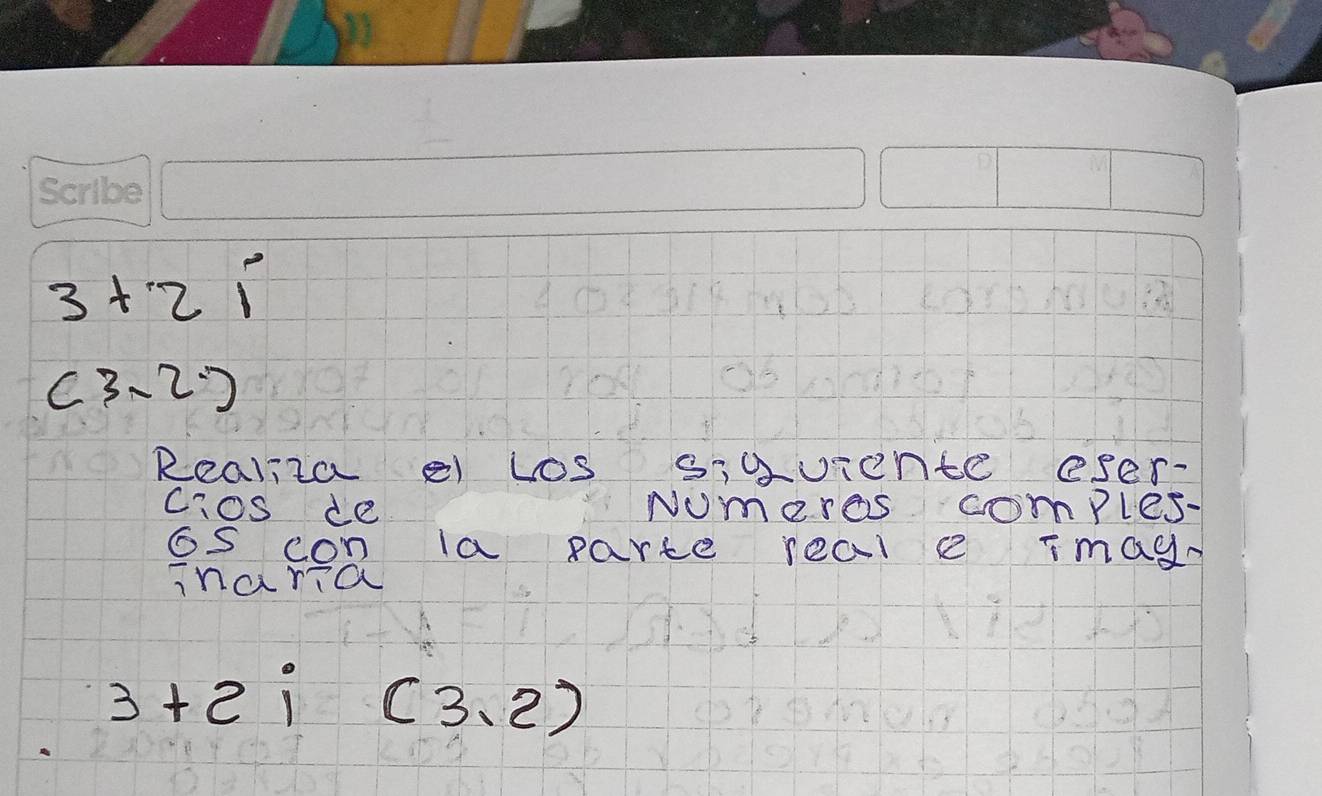 Scribe
D M A
3+2i
(3,2)
Realiza el Los siguiente eser-
cios de Numeros comples-
os con la parte real e imag-
inaria
3+2i (3,2)